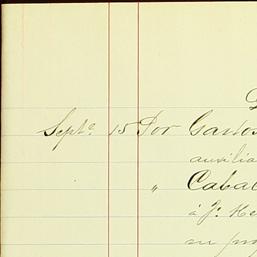 Septe. 15 Por Gastos
auxilia
" Cabal
á J. He
su